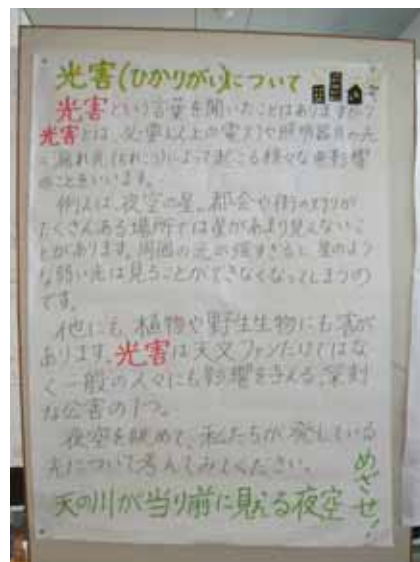 光害(ひかりがい)について
光害という言葉を聞いたことはありますか?
光害とは、必要以上の電灯や照明器具の光
、漏れ光(もれこう)によっておこる様々な悪影響
のことをいいます。
例えば、夜空の星。都会や街の灯りが
たくさんある場所では星があまり見えないこ
とがあります。周囲の光が強すぎると、星のよう
な弱い光は見ることができなくなってしまうの
です。
他にも、植物や野生生物にも害が
あります。光害は天文ファンだけではな
く一般の人々にも影響を与える、深刻
な公害の1つ。
夜空を眺めて、私たちが発している
光について考えてみてください。
めざせ!
天の川が当り前に見える夜空